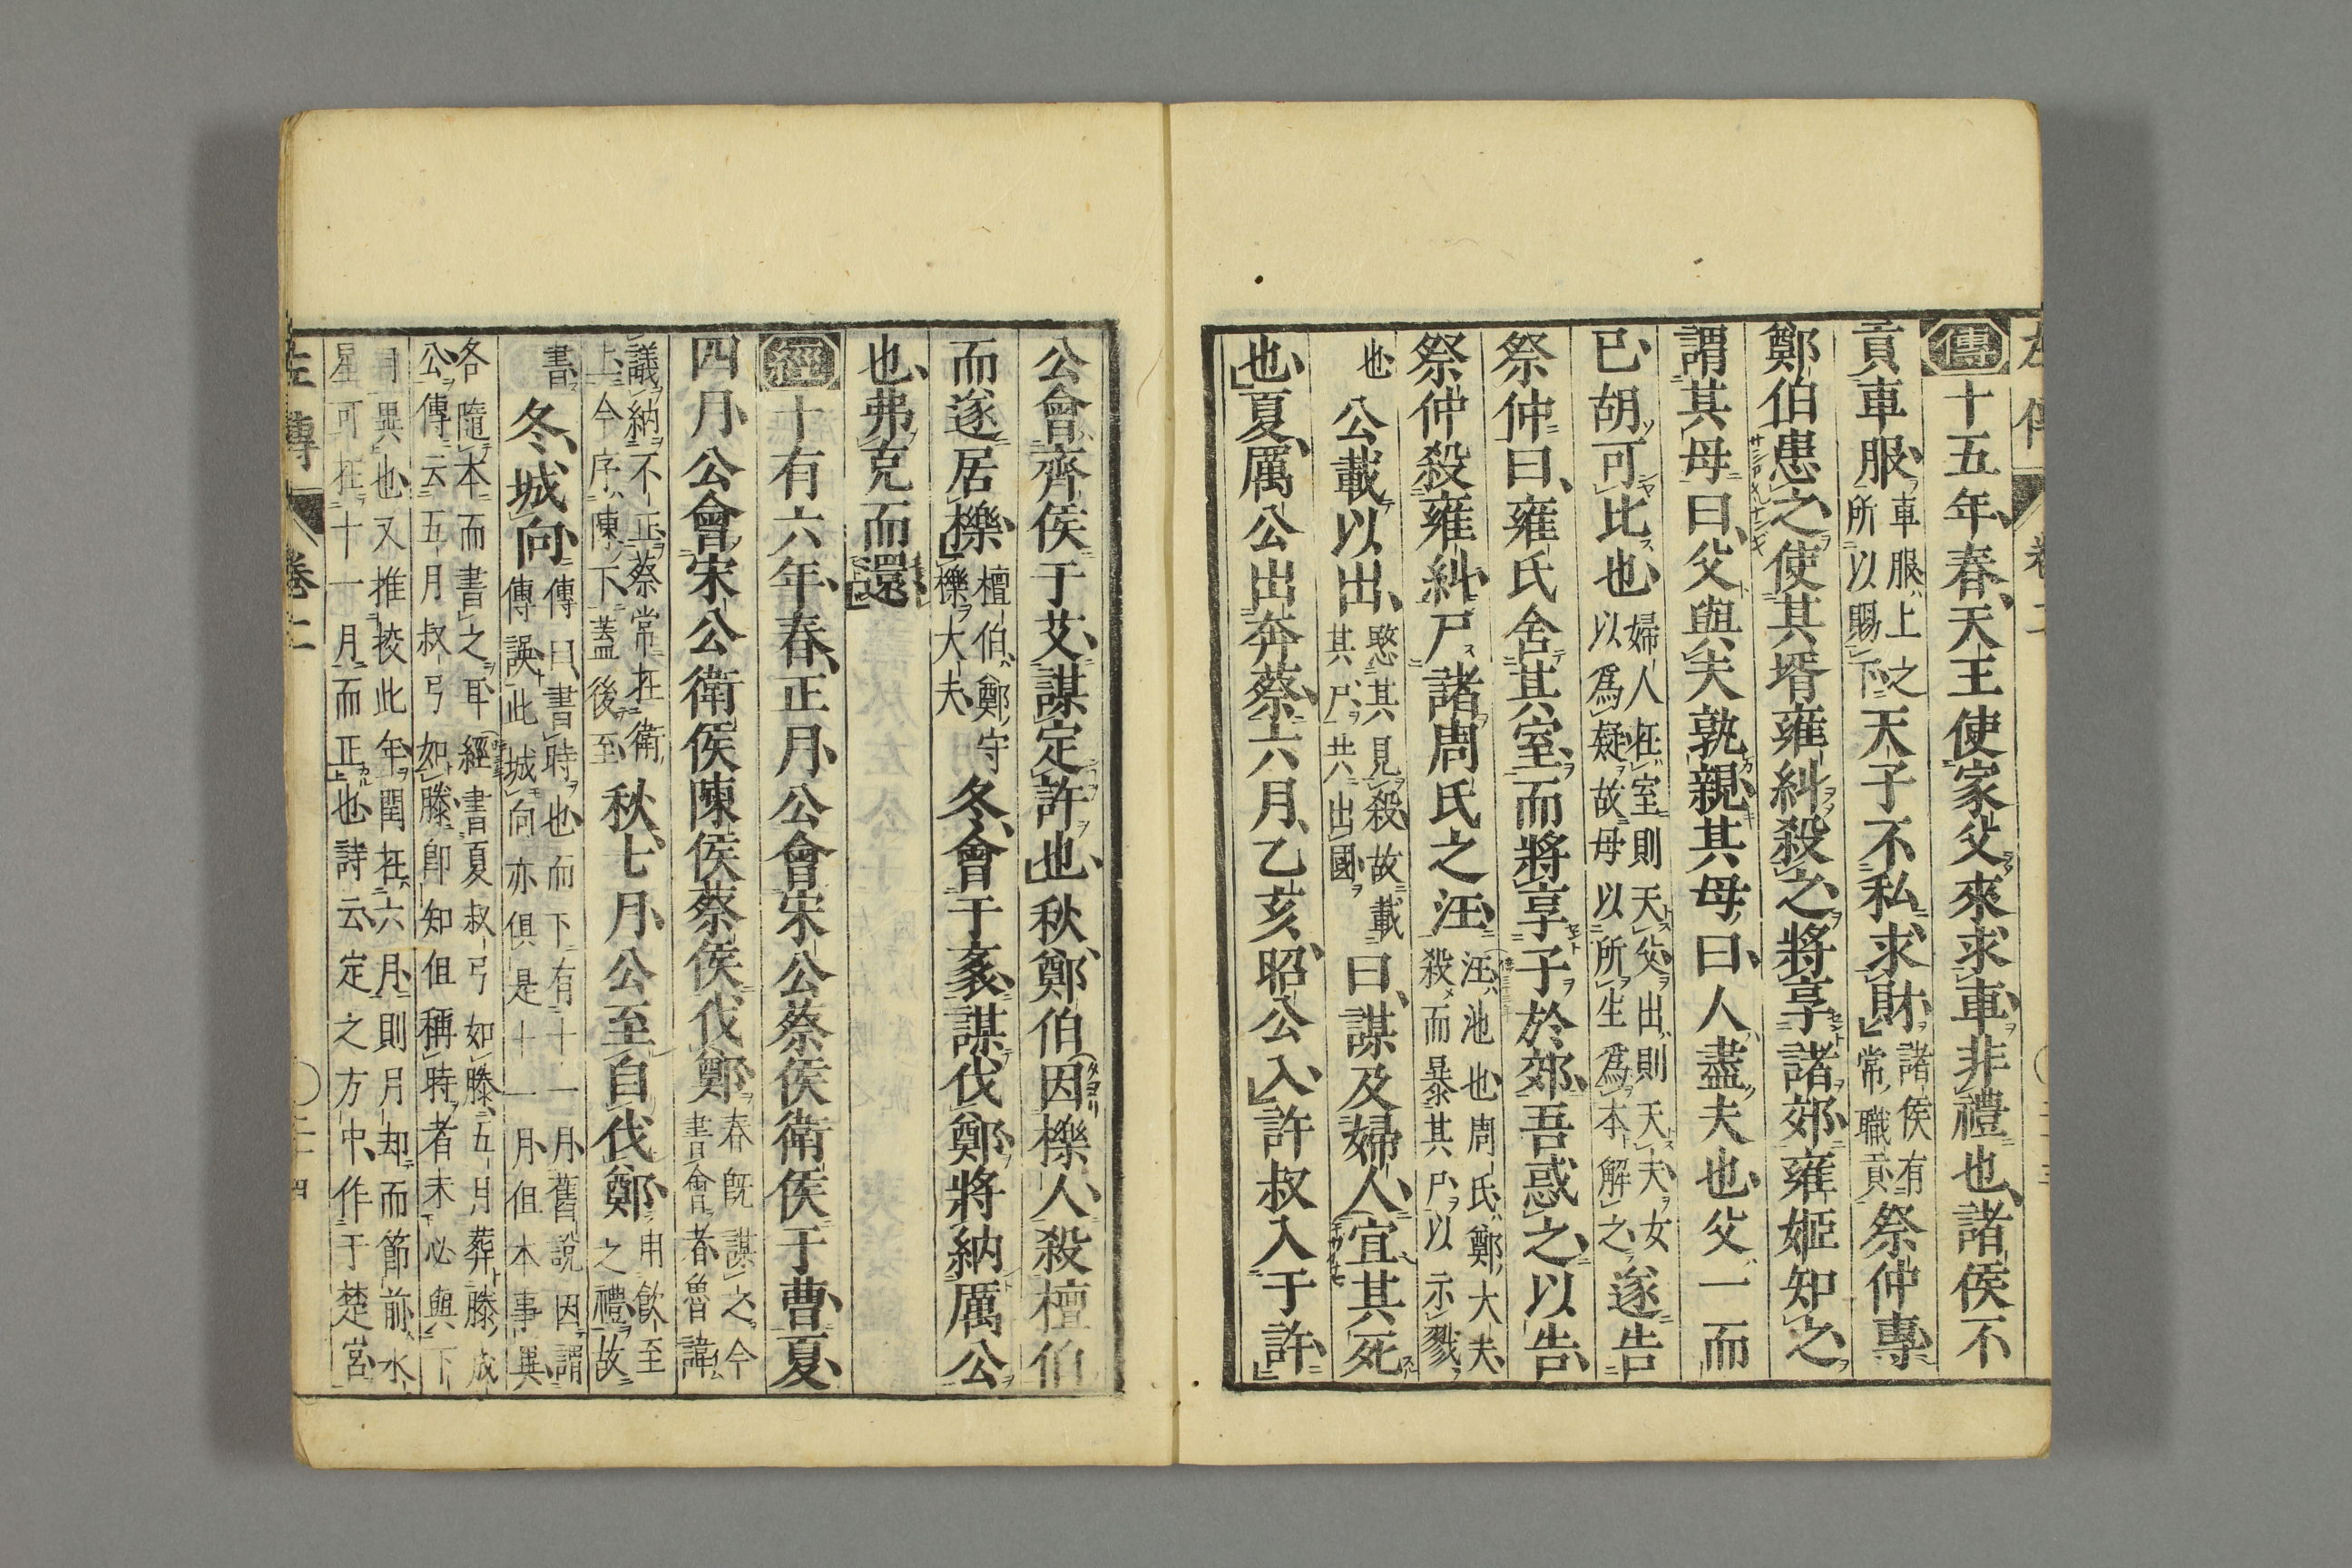 傳十五年春天王使家父來求車非禮也諸侯不
貢車服車服上之所以賜下天子不私求財諸侯有常職貢祭仲專
鄭伯患之使其壻雍糾殺之將享諸郊雍姬知之
謂其母曰父與夫孰親其母曰人盡夫也父一而
已胡可比也婦人在室則天父出則天夫女以爲疑故母以所生爲本解之遂告
祭仲曰雍氏舍其室而將享子於郊吾惑之以告
祭仲殺雍糾尸諸周氏之汪汪池也周氏鄭大夫殺而暴其尸以示戮
也公載以出愍其見殺故載其尸共出國曰謀及婦人宜其死
也夏厲公出奔蔡六月乙亥昭公入許叔入于許
公會齊侯于艾謀定許也秋鄭伯因櫟人殺檀伯
而遂居櫟檀伯鄭守櫟大夫冬會于袲謀伐鄭將納厲公
也弗克而還
經十有六年春正月公會宋公蔡侯衛侯于曹夏
四月公會宋公衛侯陳侯蔡侯伐鄭春既謀之今書會者魯諱
議納不正蔡常在衛上今序陳下蓋後至秋七月公至自伐鄭用飲至之禮故
書冬城向傳曰書時也而下有十一月舊說因謂傳誤此城向亦俱是十一月但本事異
各隨本而書之耳經書夏叔弓如滕五月葬滕成公傳云五月叔弓如滕即知但稱時者未必與下
月異也又推挍此年閏在六月則月却而節前水星可在十一月而正也詩云定之方中作于楚宮
左傳
卷二